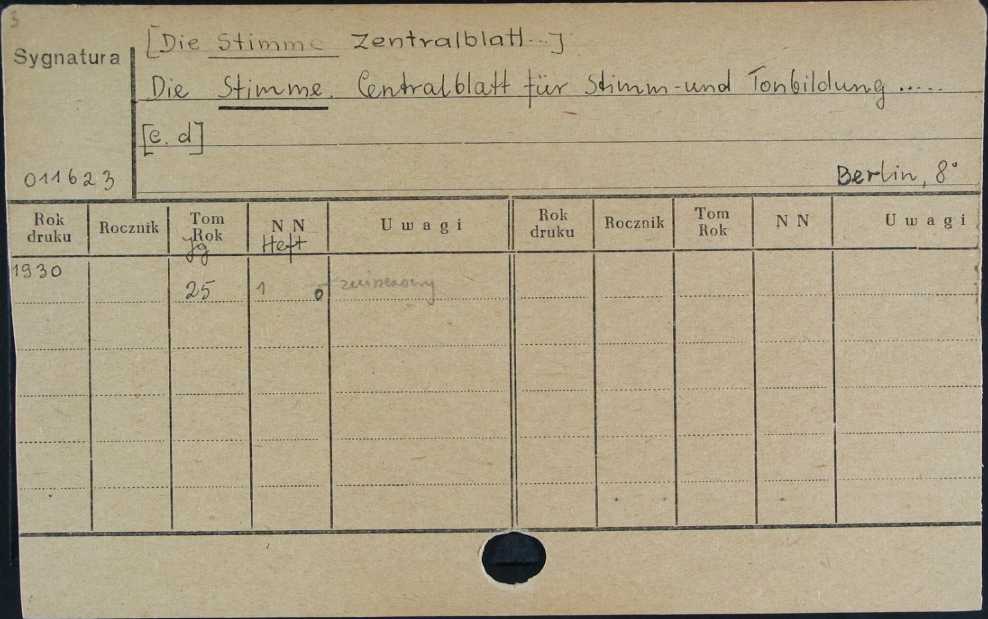 [Die Stimme Zentralblatt...]
Sygnatura
Die Stimme. Centralblatt für Stimm-und Tonbildung .....
[c. d]
011623
Berlin, 8°
Rok druku Rocznik Tom Rok N N U w a g i Rok druku Rocznik Tom Rok N N U w a g i
Jg Heft
1930
25 1 0